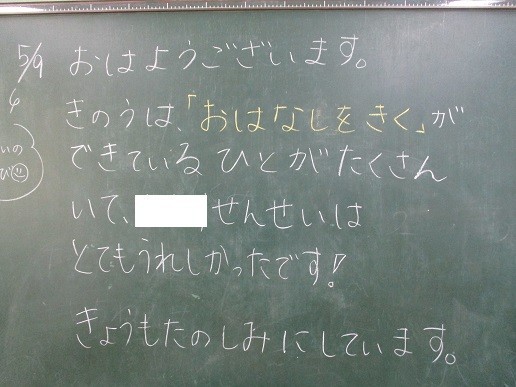 5/9 おはようございます。
きのうは、「おはなしをきく」が
できているひとがたくさん
いて、せんせいは
とてもうれしかったです!
きょうもたのしみにしています。